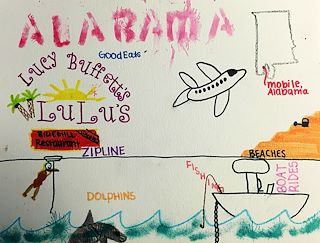 ALABAMA
GOOD EATS
LUCY BUFFETT'S
LULU'S
Restaurant
mobile,
Alabama
ZIPLINE
BEACHES
FISHING
BOAT
RIDES
DOLPHINS